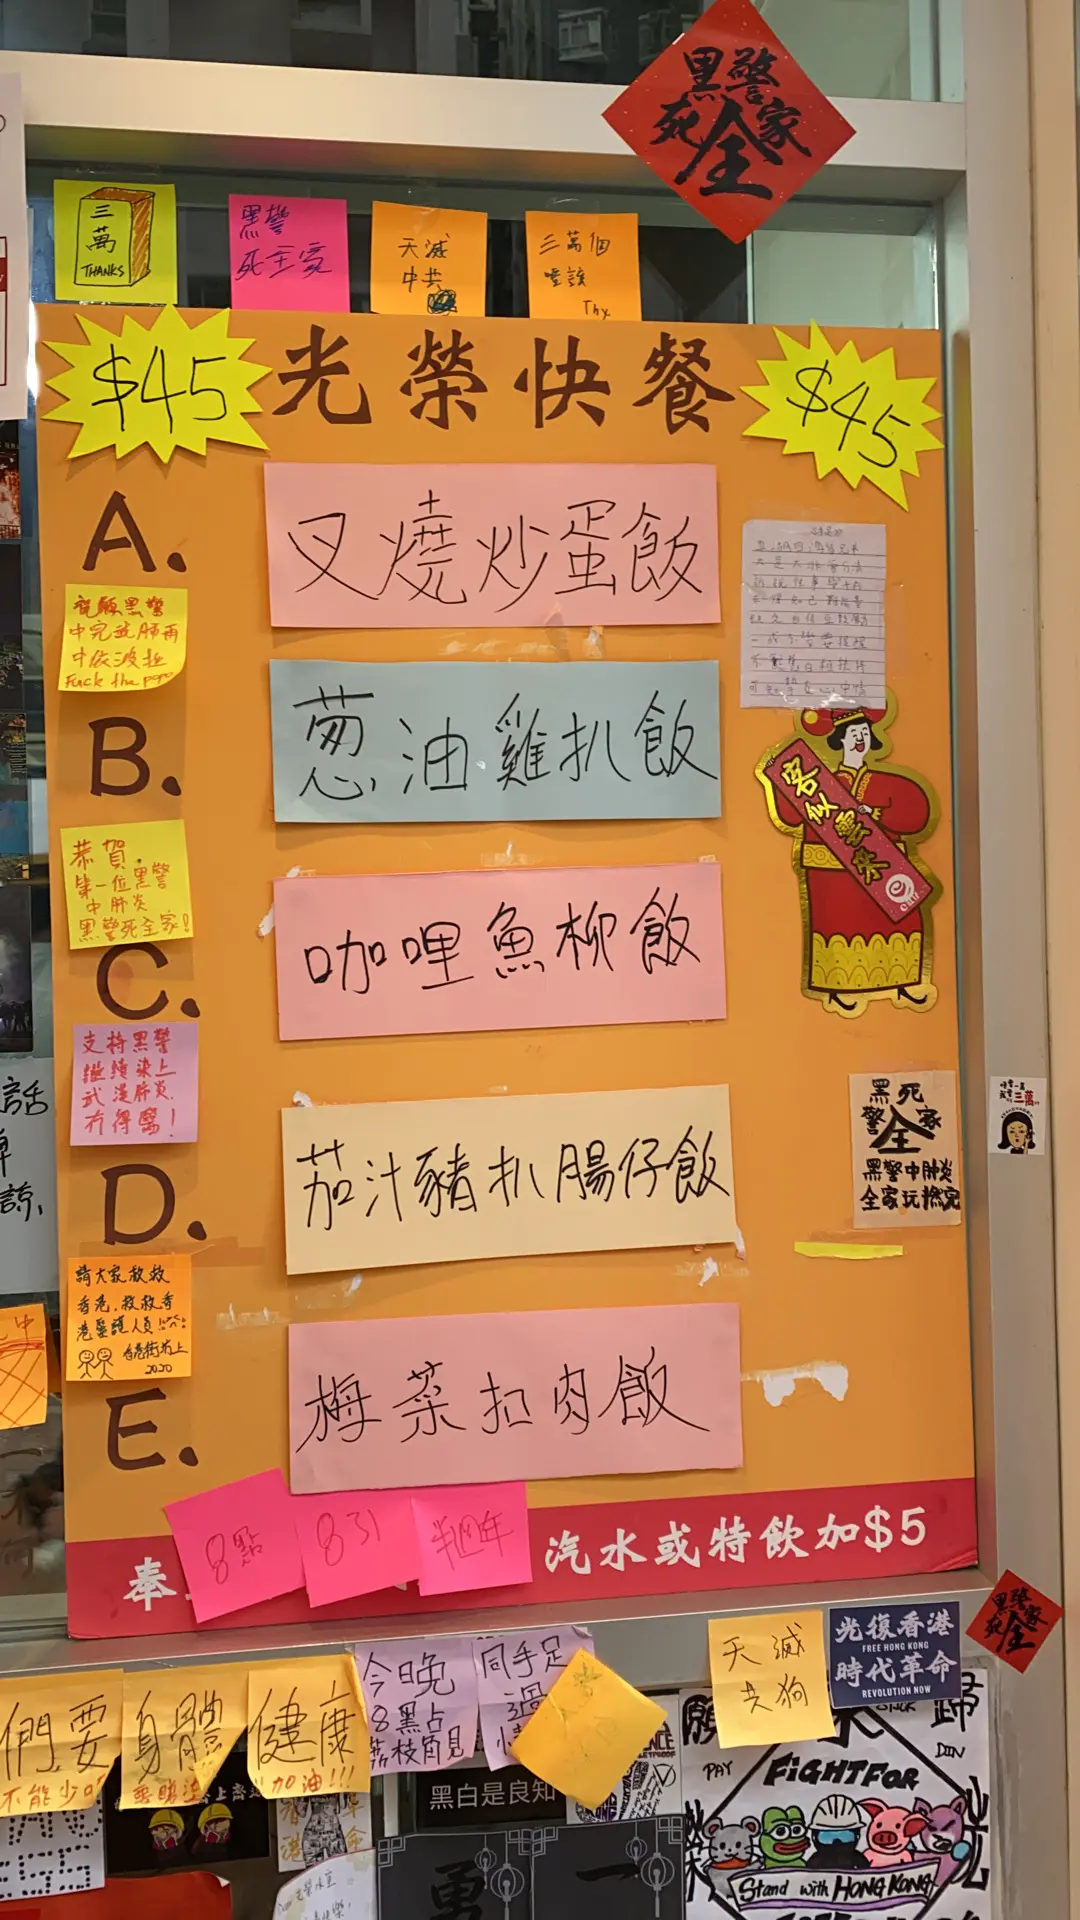 黑警
死全家
三萬
THANKS
黑警
死全家
天滅
中共
三萬個
唔該
Thx
$45
光榮快餐
$45
A.
叉燒炒蛋飯
祝願黑警
中完武肺再
中依波拉
Fuck the popo
B.
葱油雞扒飯
客似雲來
恭賀
第一位黑警
中肺炎
黑警死全家!
C.
咖哩魚柳飯
支持黑警
繼續染上
武漢肺炎
冇得醫!
D.
茄汁豬扒腸仔飯
黑警
死全家
黑警中肺炎
全家玩撚完
三萬
請大家救救
香港,救救香
港醫護人員
香港街坊上
2020
E.
梅菜扣肉飯
8點
831
半週年
奉
汽水或特飲加$5
黑警
死全家
們要
身體
健康
不能少
加油!!!
今晚
8點
荔枝角見
同手足
過
天滅
共狗
光復香港
FREE HONG KONG
時代革命
REVOLUTION NOW
黑白是良知
願
歸
PAY
DIN
FIGHT FOR
Stand with HONG KONG
榮
光
勇
一
話
諒